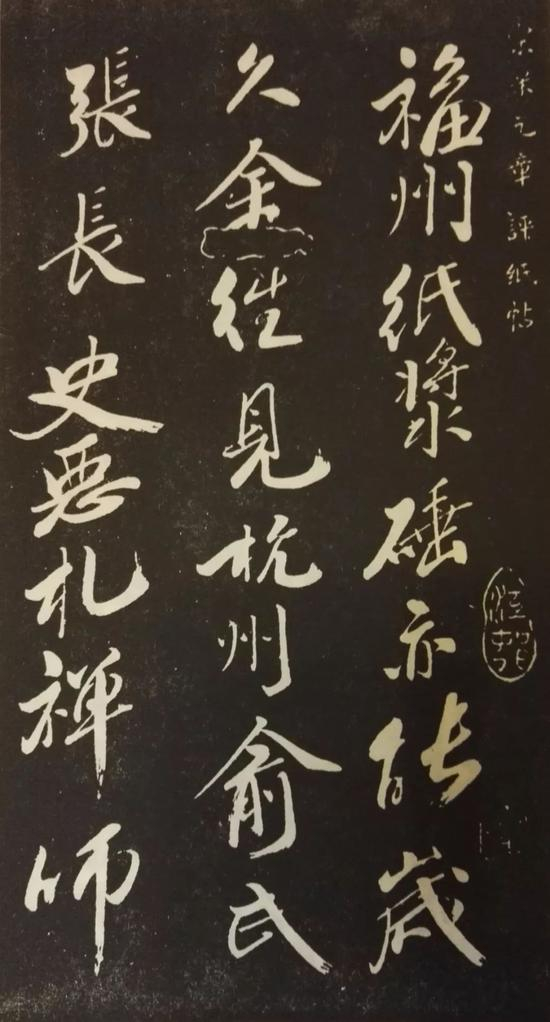 宋米元章評紙帖
福州紙漿硾亦能歲
久余往見杭州俞氏
張長史惡札禪師